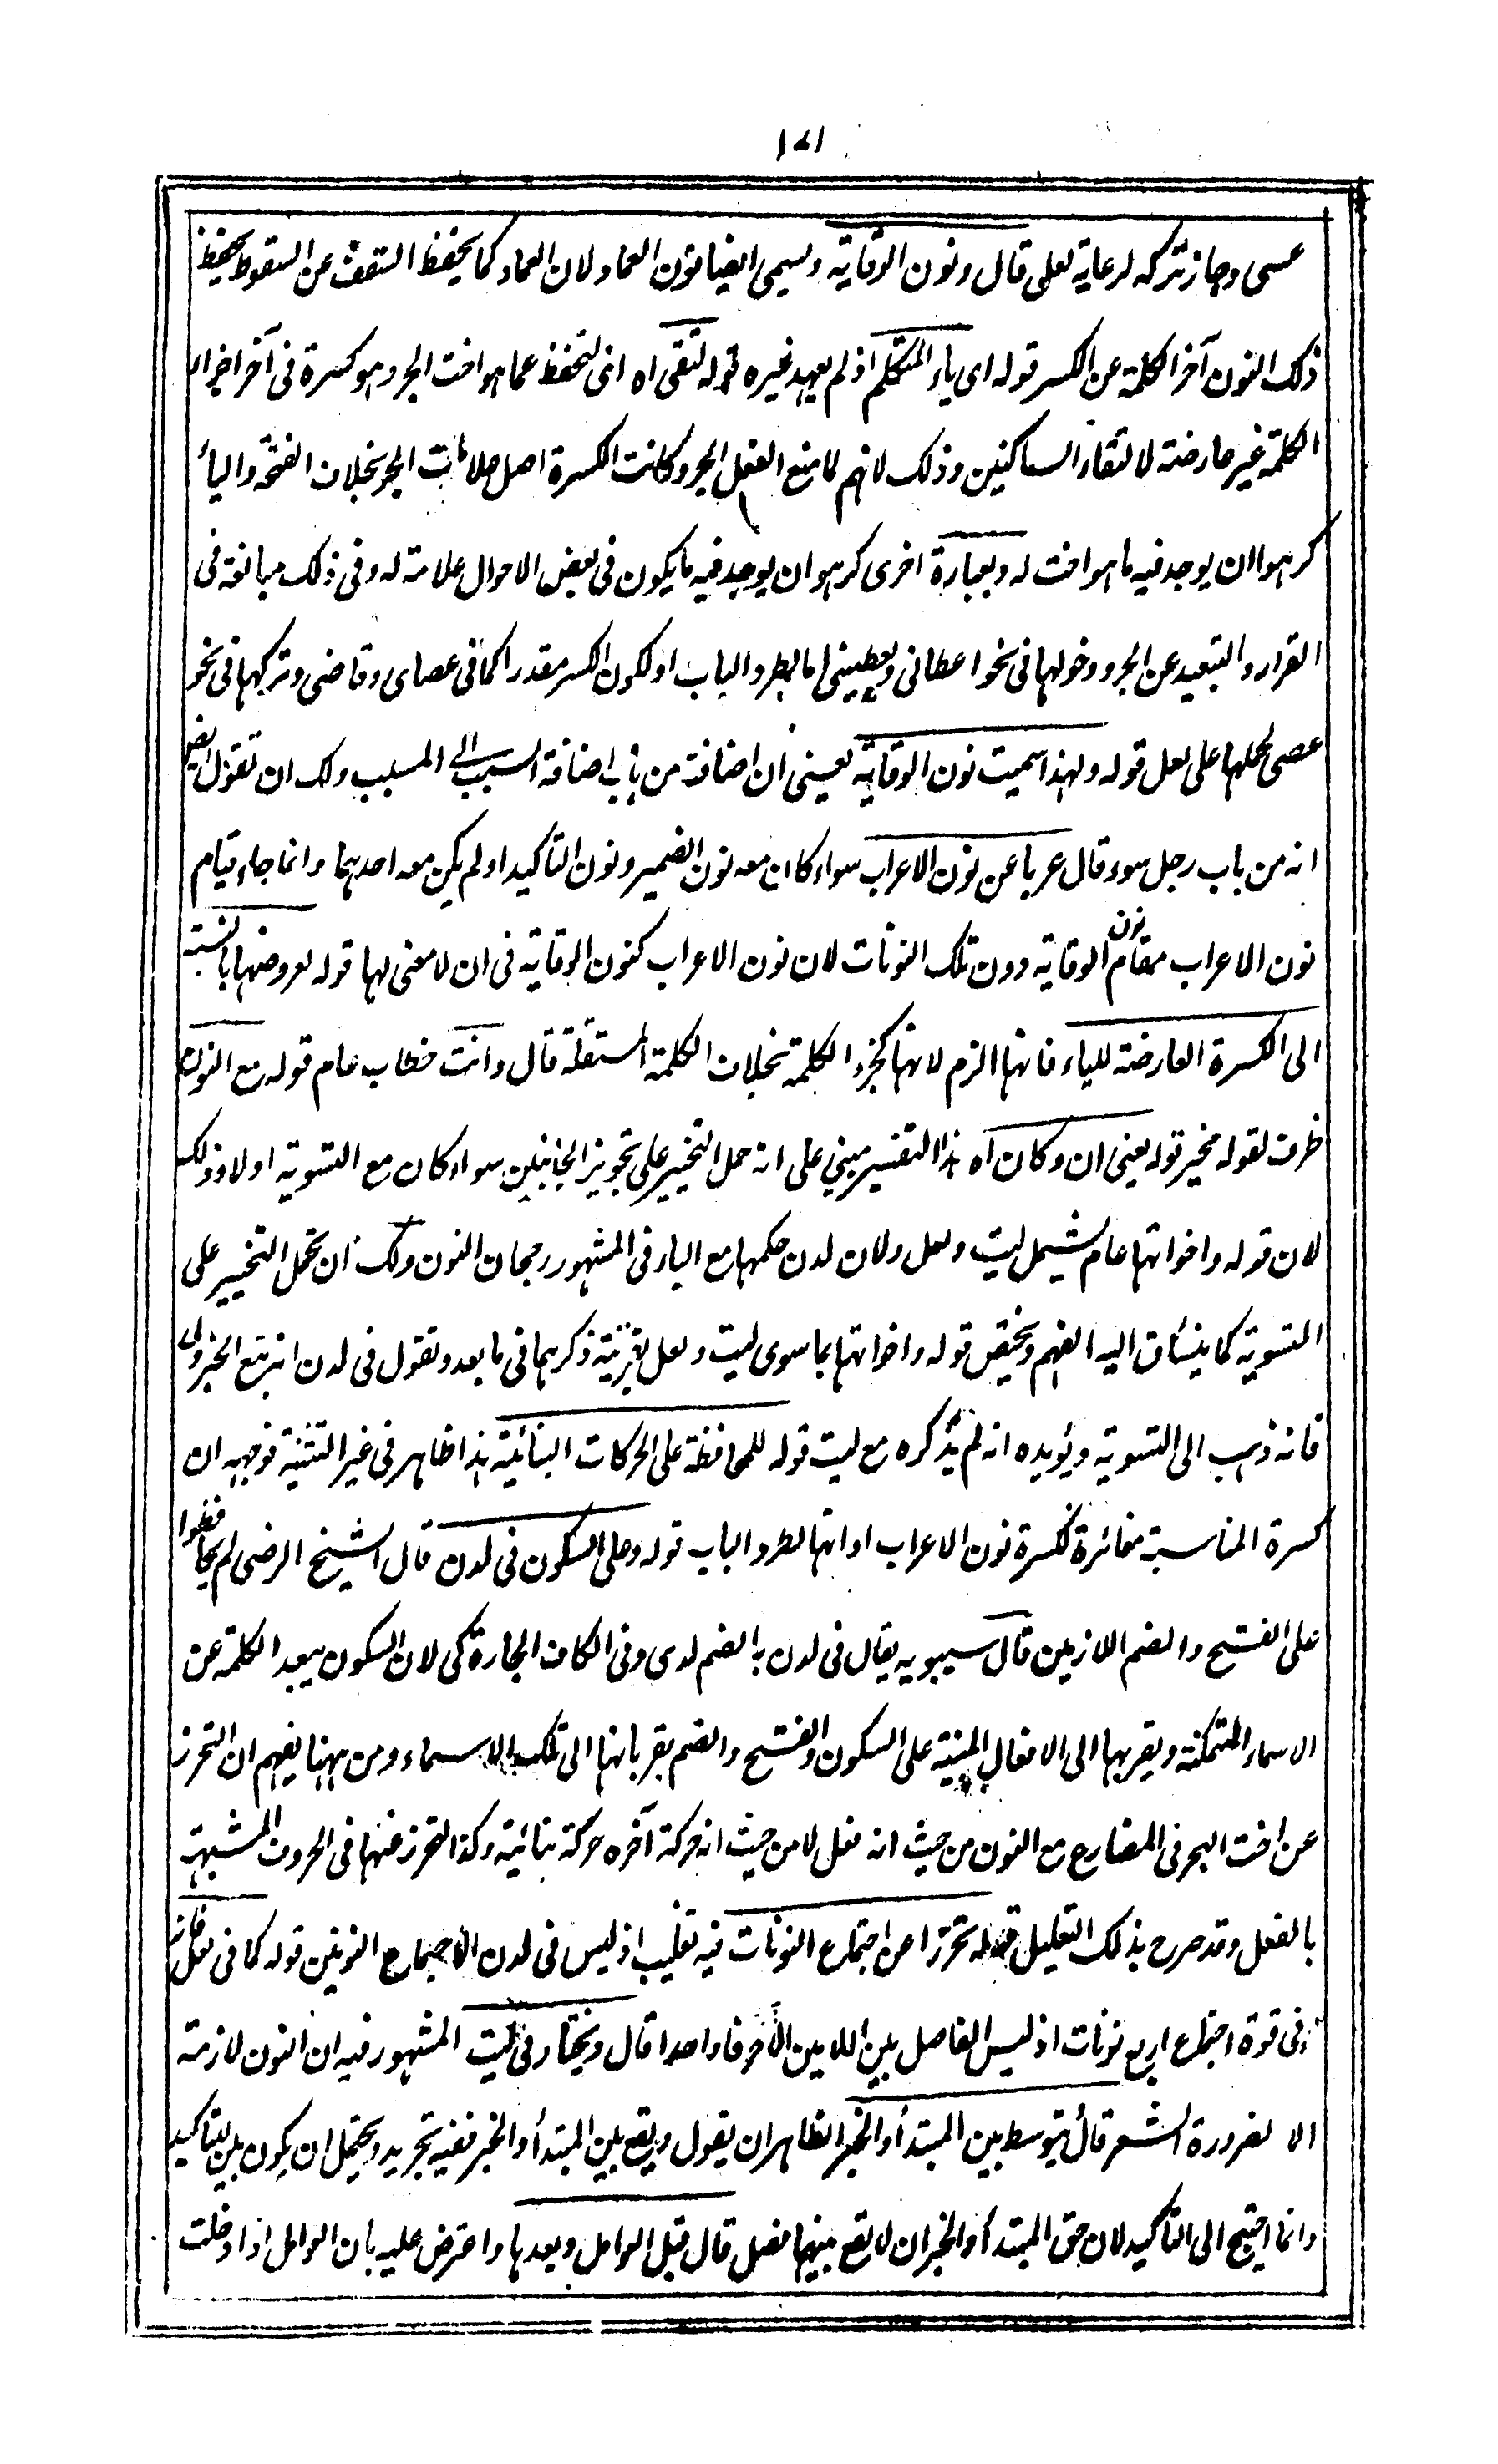 ۱۷۱
عسى وجاز تركه لرعاية لعلى قال ونون الوقاية ويسمى ايضا نون العماد لان العماد كما يحفظ السقف عن السقوط يحفظ
ذلك النون آخر الكلمة عن الكسر قوله اى ياء المتكلم اذ لم يعهد غيره قوله لتقى اه اى لتحفظ عما هو اخت الجر وهو كسرة فى آخر اجزاء
الكلمة غير عارضة لالتقاء الساكنين وذلك لانهم لما منع الفعل الجر وكانت الكسرة اصل علامات الجر بخلاف الفتحة والياء
كرهوا ان يوجد فيه ما هو اخت له وبعبارة اخرى كرهو ان يوجد فيه ما يكون فى بعض الاحوال علامة له وفى ذلك مبالغة فى
الفرار والتبعيد عن الجر ودخولها فى نحو اعطانى ويعطينى اما لطرد الباب او لكون الكسر مقدرا كما فى عصاى وقاضى وتركها فى نحو
عسى لحملها على لعل قوله ولهذا سميت نون الوقاية يعنى ان اضافته من باب اضافة السبب الى المسبب ولك ان تقول ايضا
انه من باب رجل سوء قال عريا عن نون الاعراب سواء كان معه نون الضمير ونون التاكيد او لم يكن معه احدهما وانما جاء قيام
نون الاعراب مقام نون الوقاية دون تلك النونات لان نون الاعراب كنون الوقاية فى ان لا معنى لها قوله لعروضها بالنسبة
الى الكسرة العارضة للياء فانها الزم لانها كجزء الكلمة بخلاف الكلمة المستقلة قال وانت خطاب عام قوله مع النون
ظرف لقوله مخير قوله يعنى ان وكان اه هذا التفسير مبني على انه حمل التخيير على تجويز الجانبين سواء كان مع التسوية اولا وذلك
لان قوله واخواتها عام يشمل ليت ولعل ولان لدن حكمها مع الياء فى المشهور رجحان النون ولك ان تحمل التخيير على
التسوية كما ينساق اليه الفهم ويخص قوله واخواتها بما سوى ليت ولعل بقرينة ذكرهما فى ما بعد وتقول فى لدن انه تبع الجزولى
فانه ذهب الى التسوية ويؤيده انه لم يذكره مع ليت قوله للمحافظة على الحركات البنائية هذا ظاهر فى غير التثنية توجيهه ان
كسرة المناسبة مغائرة لكسرة نون الاعراب او انها لطرد الباب قوله وعلى السكون فى لدن قال الشيخ الرضى لم يحافظوا
على الفتح والضم اللازمين قال سيبويه يقال فى لدن بالضم لدى وفى الكاف الجارة كى لان السكون يبعد الكلمة عن
الاسماء المتمكنة ويقربها الى الافعال المبنية على السكون والفتح والضم يقربانها الى تلك الاسماء ومن ههنا يفهم ان التحرز
عن اخت الجر فى المضارع مع النون من حيث انه فعل لا من حيث انه حركة آخره حركة بنائية وكذا التحرز عنها فى الحروف المشبهة
بالفعل وقد صرح بذلك التعليل قوله تحرزا عن اجتماع النونات فيه تغليب اذ ليس فى لدن الا اجتماع النونين قوله كما فى لعل فانه
فى قوة اجتماع اربع نونات اذ ليس الفاصل بين اللامين الا حرفا واحدا قال ويختار فى ليت المشهور فيه ان النون لازمة
الا لضرورة الشعر قال يتوسط بين المبتدأ والخبر الظاهر ان يقول ويقع بين المبتدأ والخبر ففيه تجريد ويحتمل ان يكون بين لتاكيد
وانما احتيج الى التاكيد لان حق المبتدأ والخبر ان لا يقع بينهما فصل قال قبل العوامل وبعدها واعترض عليه بان العوامل اذا دخلت